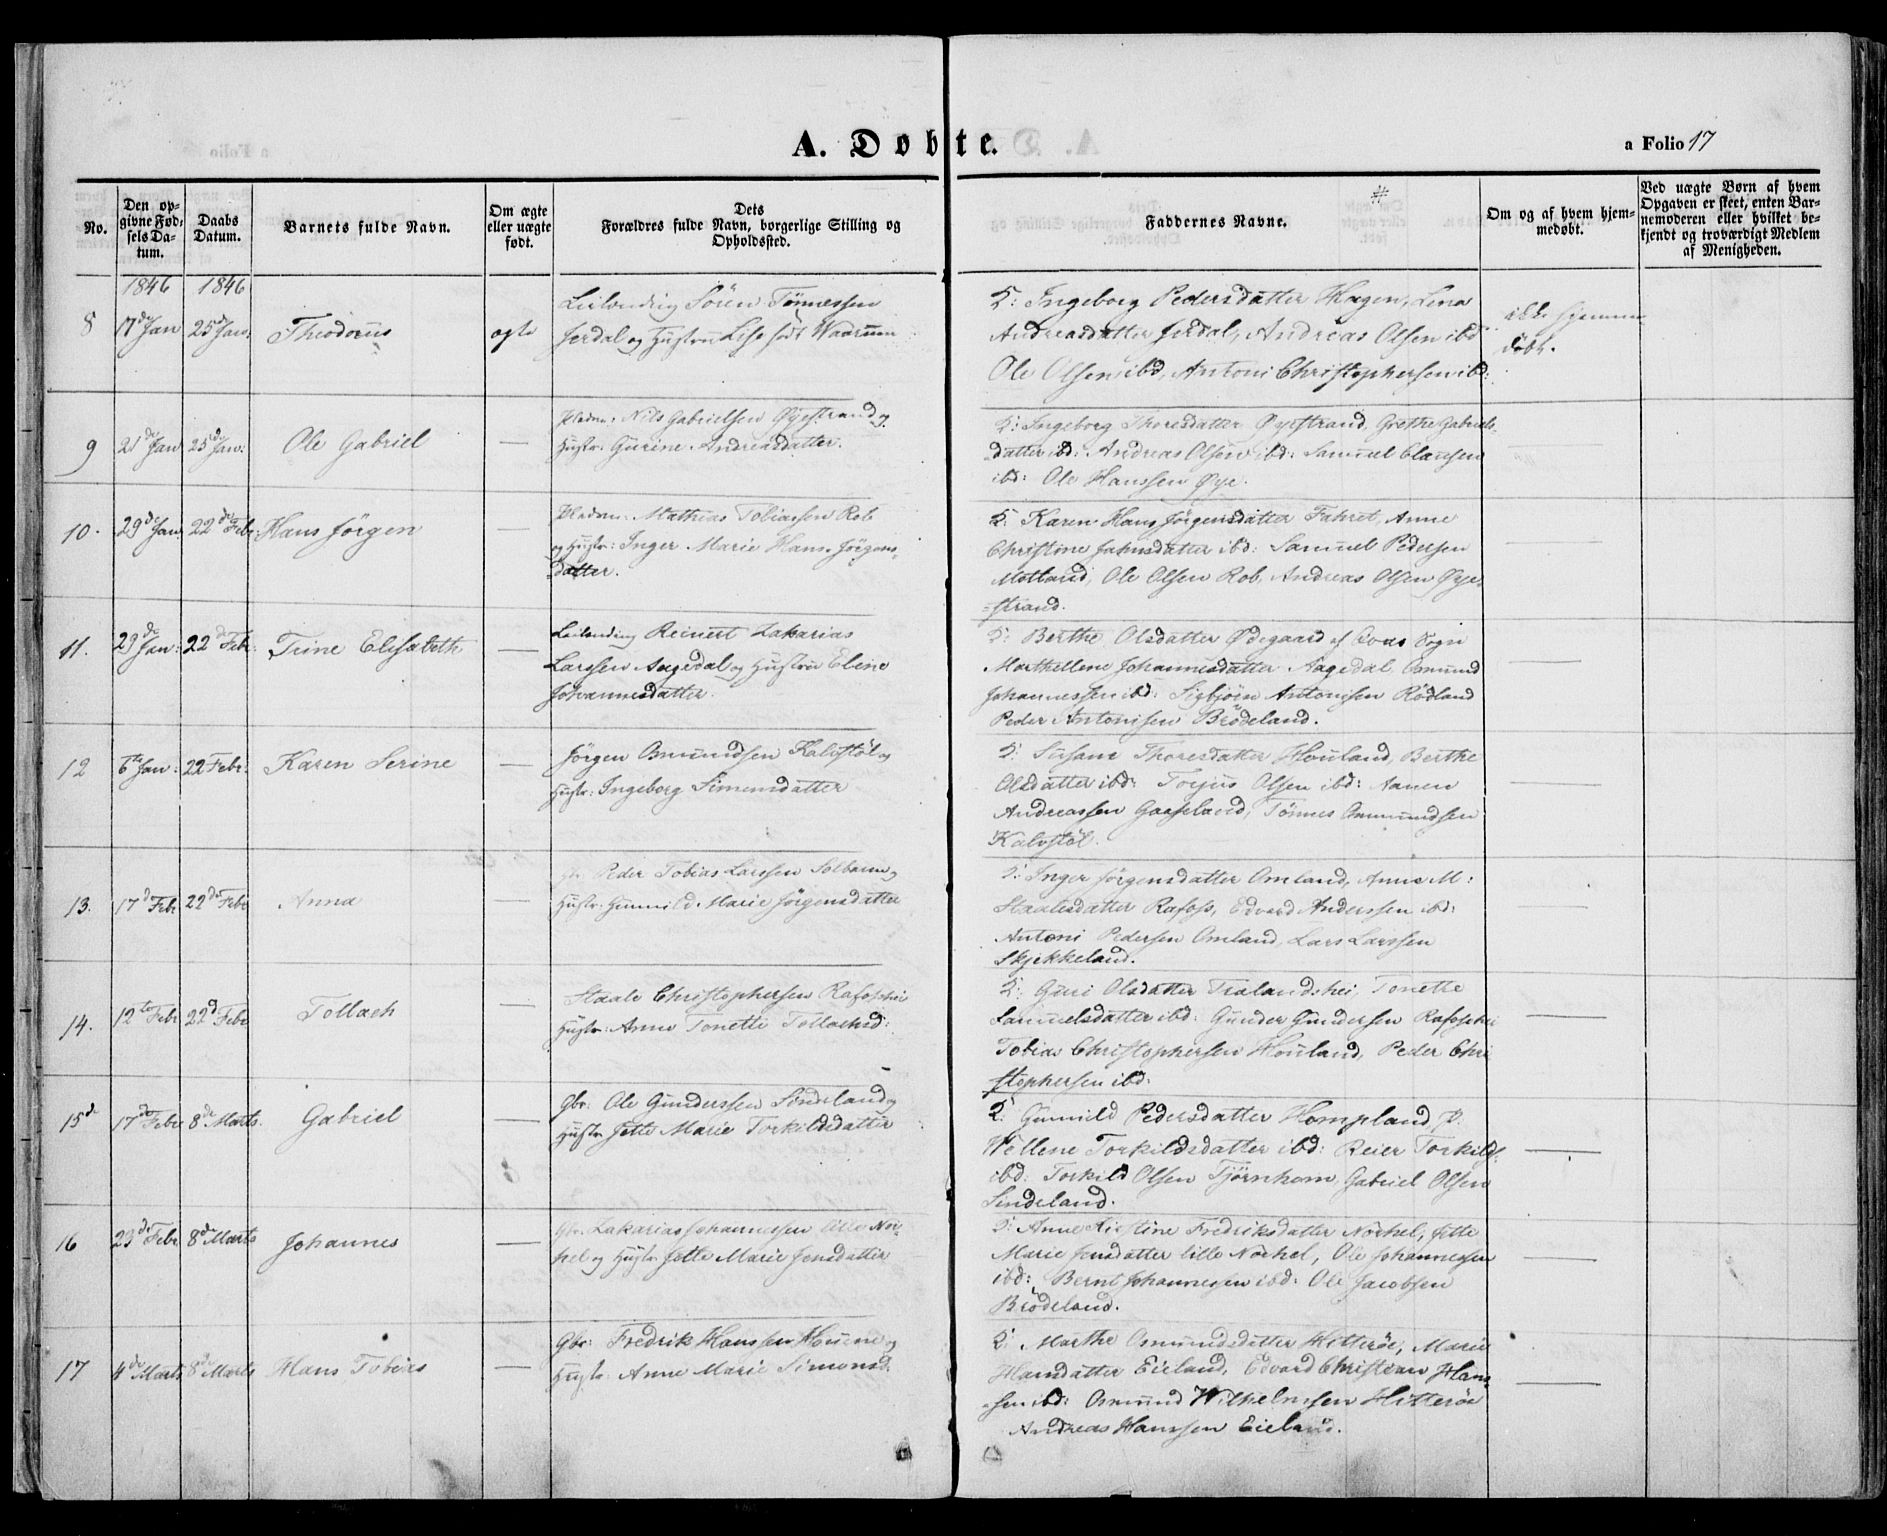 A. Døbte.
a Folio 17
No.
Den opgivne Fødsels Datum.
Daabs Datum.
Barnets fulde Navn.
Om ægte eller uægte født.
Dets Forældres fulde Navn, borgerlige Stilling og Opholdssted.
Faddernes Navne.
Om og af hvem hjemmedøbt.
Ved uægte Børn af hvem Opgaven er skeet, enten Barnemoderen eller hvilket bekjendt og troværdigt Medlem af Menigheden.
1846 1846
8 17de Jan 25de Jan: Theodorus ægte
Leilending Sören Tönnessen
Jerdal og Hustru Lise født Waarum
5: Ingeborg Pedersdatter Hagen, Lena
Andreasdatter Jerdal, Andreas Olsen ibd
Ole Olsen ibd, Antoni Christophersen ibd:
ikke hjemme
døbt.
9 21de Jan 25de Jan: Ole Gabriel —
Pladsm: Nils Gabrielsen Øyestrand og
Hustr: Gurine Andreasdatter.
5: Ingeborg Thoresdatter Øyestrand, Grethe Gabriels
datter ibd: Andreas Olsen ibd: Samuel Clausen
ibd: Ole Hanssen Øye.
10. 29de Jan 22de Febr: Hans Jörgen —
Pladsm: Mathias Tobiassen Rob
og Hustr: Inger Marie Hans Jörgens-
datter.
5: Karen Hans Jörgensdatter Fahret, Anne
Christine Jahnsdatter ibd: Samuel Pedersen
Motland, Ole Olsen Rob, Andreas Olsen Øye
=strand.
11. 29de Jan: 22de Febr: Trine Elisabeth —
Leilending Reinert Zakarias
Larssen Aagedal og Hustru Eline
Johannesdatter.
5: Berthe Olsdatter Ødegaard af Qvas Sogn
Marthellene Johannesdatter Aagedal, Osmund
Johannessen ibd: Sigbjörn Antonisen Rödland
Peder Antonisen Brödeland.
12 6te Jan: 22 Febr: Karen Serine —
Jörgen Osmundsen Kalvstöl og
Hustr: Ingeborg Simonsdatter
5: Susane Thoresdatter Houland, Berthe
Olsdatter ibd: Torjus Olsen ibd: Aanen
Andreassen Gaaseland, Tönnes Osmundsen
Kalvstöl.
13. 17de Febr 22de Febr Anna —
Gbr: Peder Tobias Larssen Solbaun og
Hustr: Gunnild Marie Jörgensdatter
5: Inger Jörgensdatter Omland, Anne M:
Staalesdatter Rafoss, Edvard Anderssen ibd:
Antoni Pedersen Omland, Lars Larssen
Skjekkeland.
14. 12te Febr 22d Febr Tollach —
Staale Christophersen Rafosshei
Hustr: Anne Tonette Tollachsd:
5: Guri Olsdatter Trælandshei, Tonette
Samuelsdatter ibd: Gunder Gundersen Rafosshei
Tobias Christophersen Houland, Peder Chri
stophersen ibd:
15de 17de Febr 8de Marts. Gabriel —
Gbr: Ole Gunderssen Sindeland og
Hustr Jette Marie Torkildsdatter
5: Gunnild Pedersdatter Hompland,
Wellene Torkildsdatter ibd: Reier Torkilds:
ibd: Torkild Olsen Tjörnhom, Gabriel Olsen
Sindeland.
16 23de Febr 8de Marts Johannes —
Gbr. Zakarias Johannessen Lille Nor-
hel og Hustr Jette Marie Jensdatter
5: Anne Kirstine Fredriksdatter Nörhel, Jette
Marie Jensdatter lille Nörhel, Ole Johannessen
ibd: Bernt Johannessen ibd: Ole Jacobsen
Brödeland.
17 4de Marts 8de Marts Hans Tobias —
Gbr: Fredrik Hanssen Hunne og
Hustr: Anne Marie Simonsd.
5: Marthe Osmundsdatter Hitteröe, Marie
Hansdatter Eieland, Edvard Christian Hans-
sen ibd: Osmund Wilhelmsen Hitteröe
Andreas Hanssen Eieland.